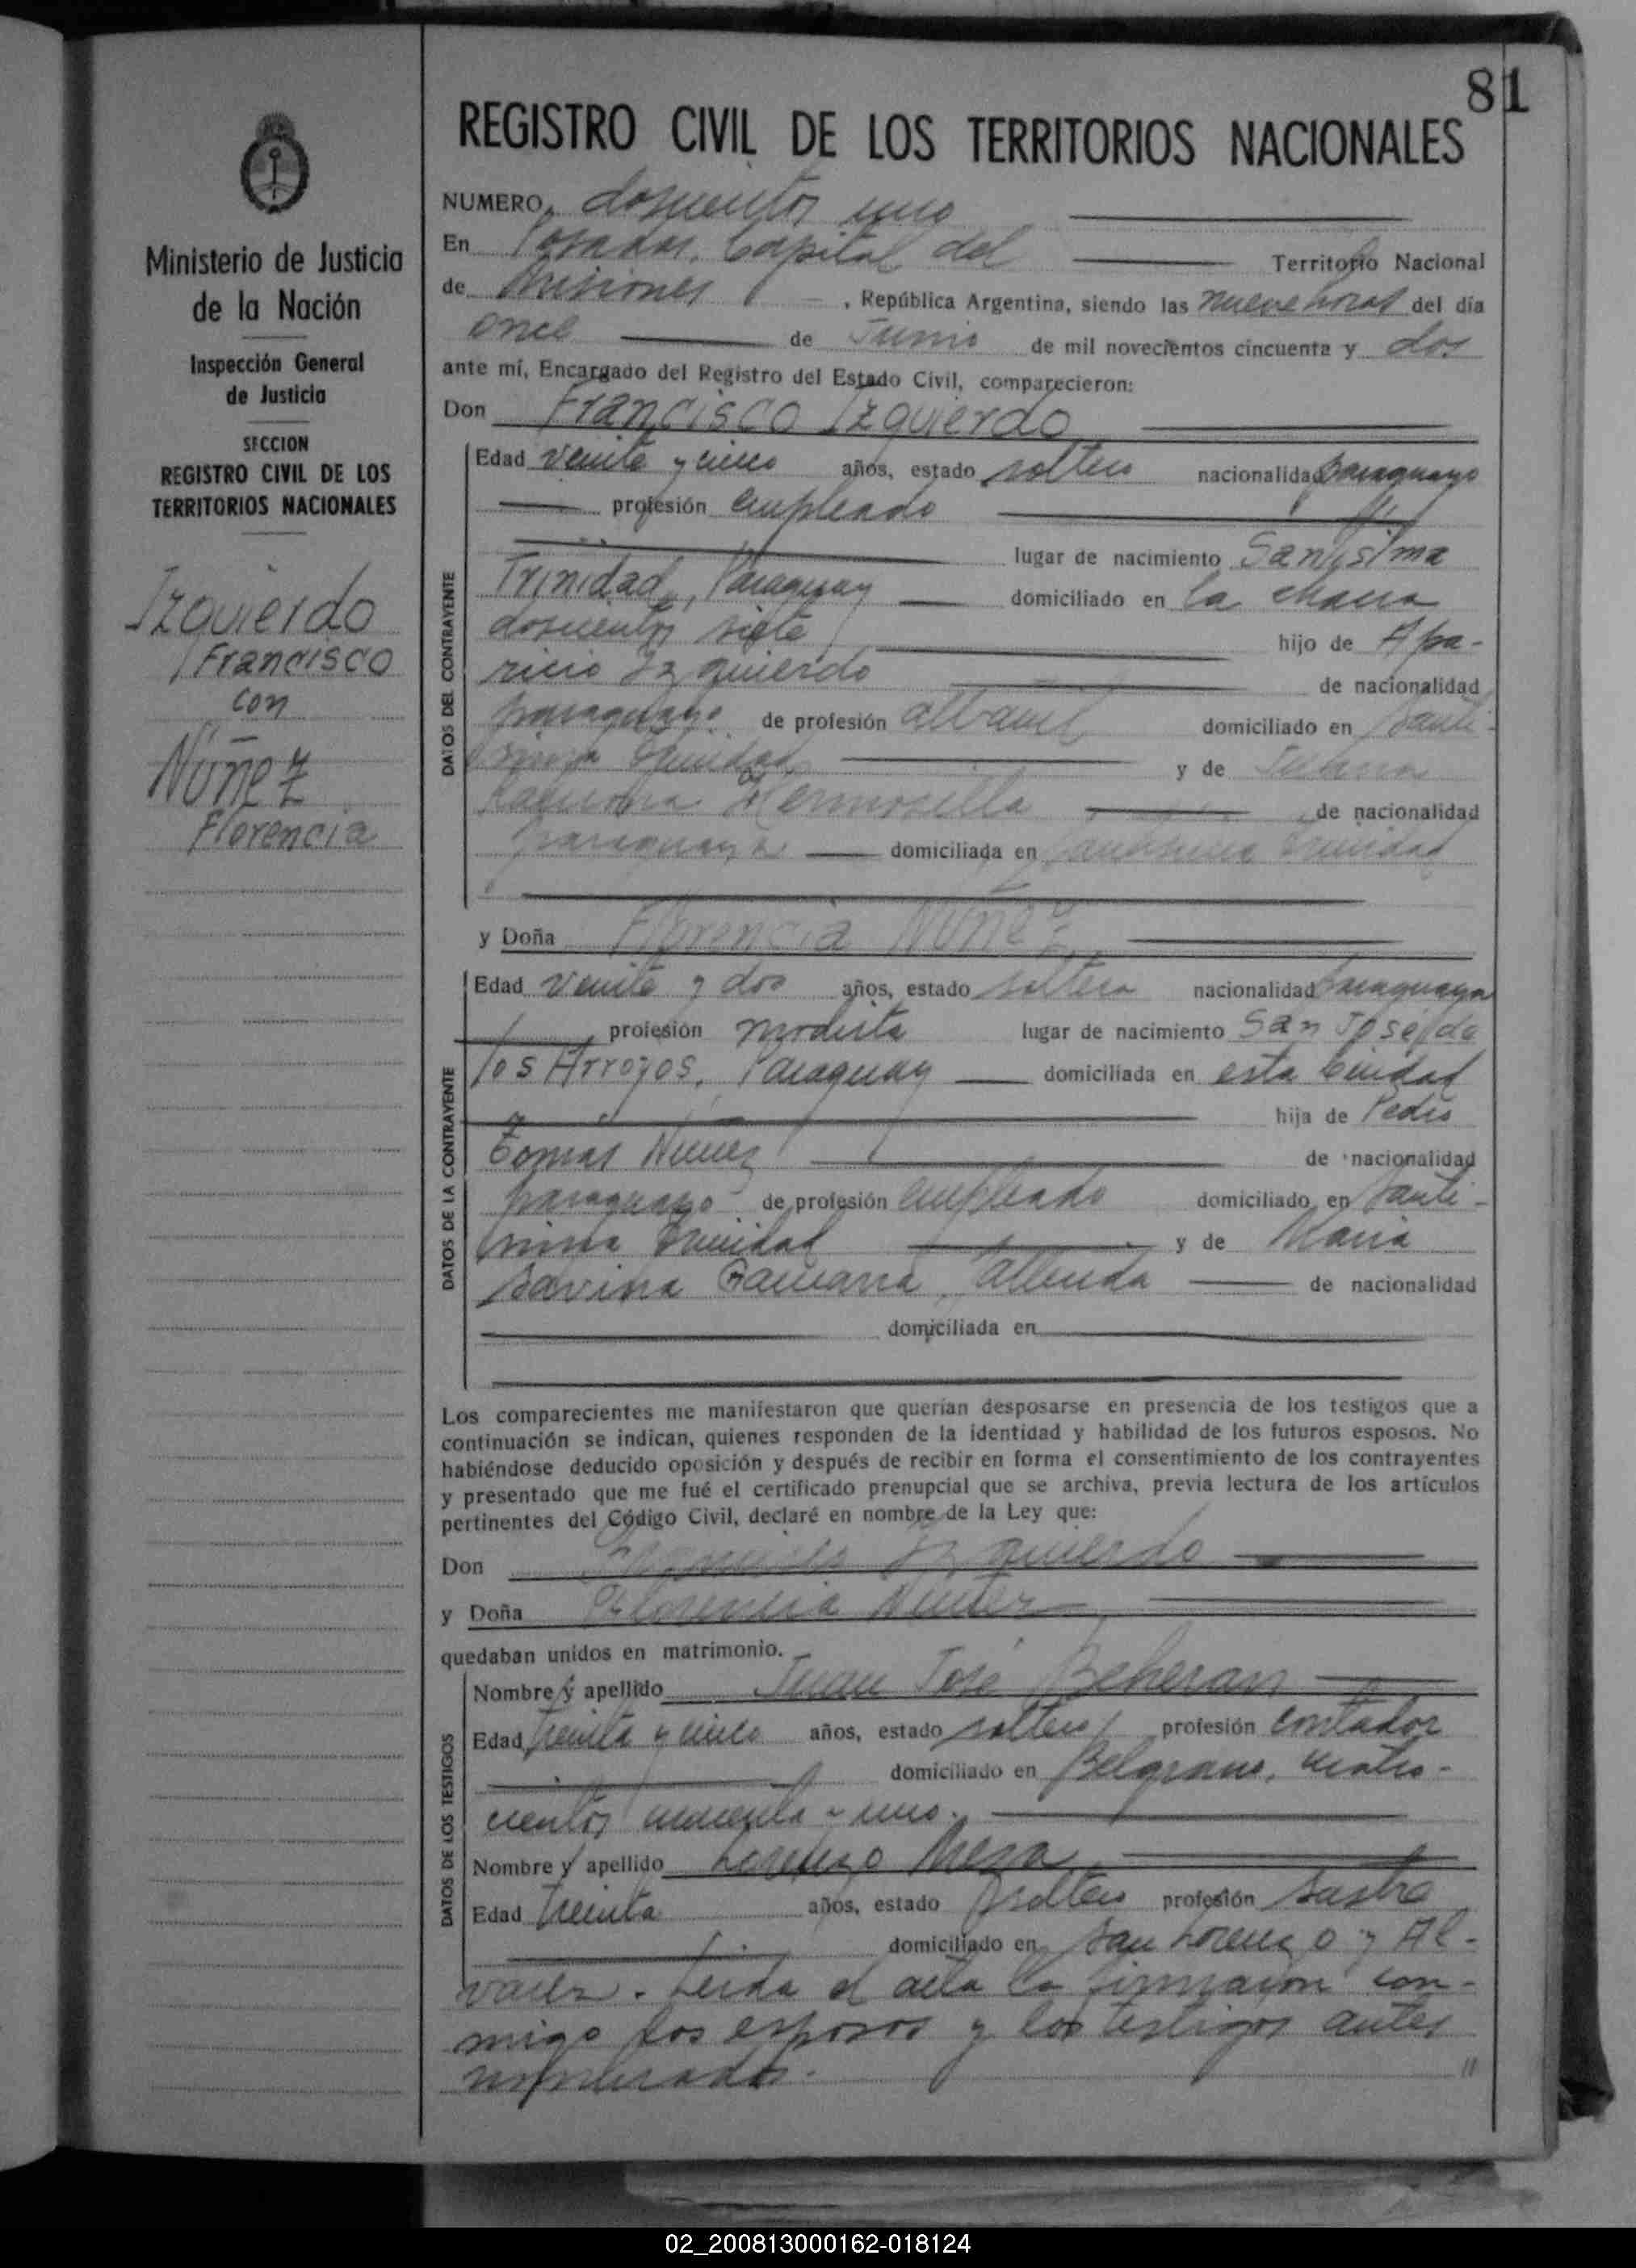 81
REGISTRO CIVIL DE LOS TERRITORIOS NACIONALES
Ministerio de Justicia
de la Nación
Inspección General
de Justicia
SECCION
REGISTRO CIVIL DE LOS
TERRITORIOS NACIONALES
Izquierdo
Francisco
con
Núñez
Florencia
NUMERO doscientos uno
En Posadas, Capital del Territorio Nacional
de Misiones, República Argentina, siendo las nueve horas del día
once de Junio de mil novecientos cincuenta y dos
ante mí, Encargado del Registro del Estado Civil, comparecieron:
Don Francisco Izquierdo
DATOS DEL CONTRAYENTE
Edad veinte y cinco años, estado soltero nacionalidad paraguayo
profesión empleado
lugar de nacimiento Santísima
Trinidad, Paraguay domiciliado en la chacra
doscientos siete hijo de Apa-
ricio Izquierdo de nacionalidad
paraguayo de profesión albañil domiciliado en Santi-
sima Trinidad y de
Hermosilla de nacionalidad
paraguaya domiciliada en Santisima Trinidad
y Doña Florencia Núñez
DATOS DE LA CONTRAYENTE
Edad veinte y dos años, estado soltera nacionalidad paraguaya
profesión modista lugar de nacimiento San José de
los Arroyos, Paraguay domiciliada en esta Ciudad
hija de Pedro
Tomas Nuñez de nacionalidad
paraguayo de profesión empleado domiciliado en Santi-
sima Trinidad y de Maria
Savina de nacionalidad
domiciliada en
Los comparecientes me manifestaron que querían desposarse en presencia de los testigos que a
continuación se indican, quienes responden de la identidad y habilidad de los futuros esposos. No
habiéndose deducido oposición y después de recibir en forma el consentimiento de los contrayentes
y presentado que me fué el certificado prenupcial que se archiva, previa lectura de los artículos
pertinentes del Código Civil, declaré en nombre de la Ley que:
Don Francisco Izquierdo
y Doña Florencia Nuñez
quedaban unidos en matrimonio.
DATOS DE LOS TESTIGOS
Nombre y apellido Juan José Beheran
Edad treinta y cinco años, estado soltero profesión contador
domiciliado en Belgrano, cuatro-
cientos y uno.
Nombre y apellido Lorenzo Mesa
Edad treinta años, estado soltero profesión sastre
domiciliado en San Lorenzo y Al-
varez. Leida el acta la firmaron con-
migo los esposos y los testigos antes
nombrados.
02_200813000162-018124